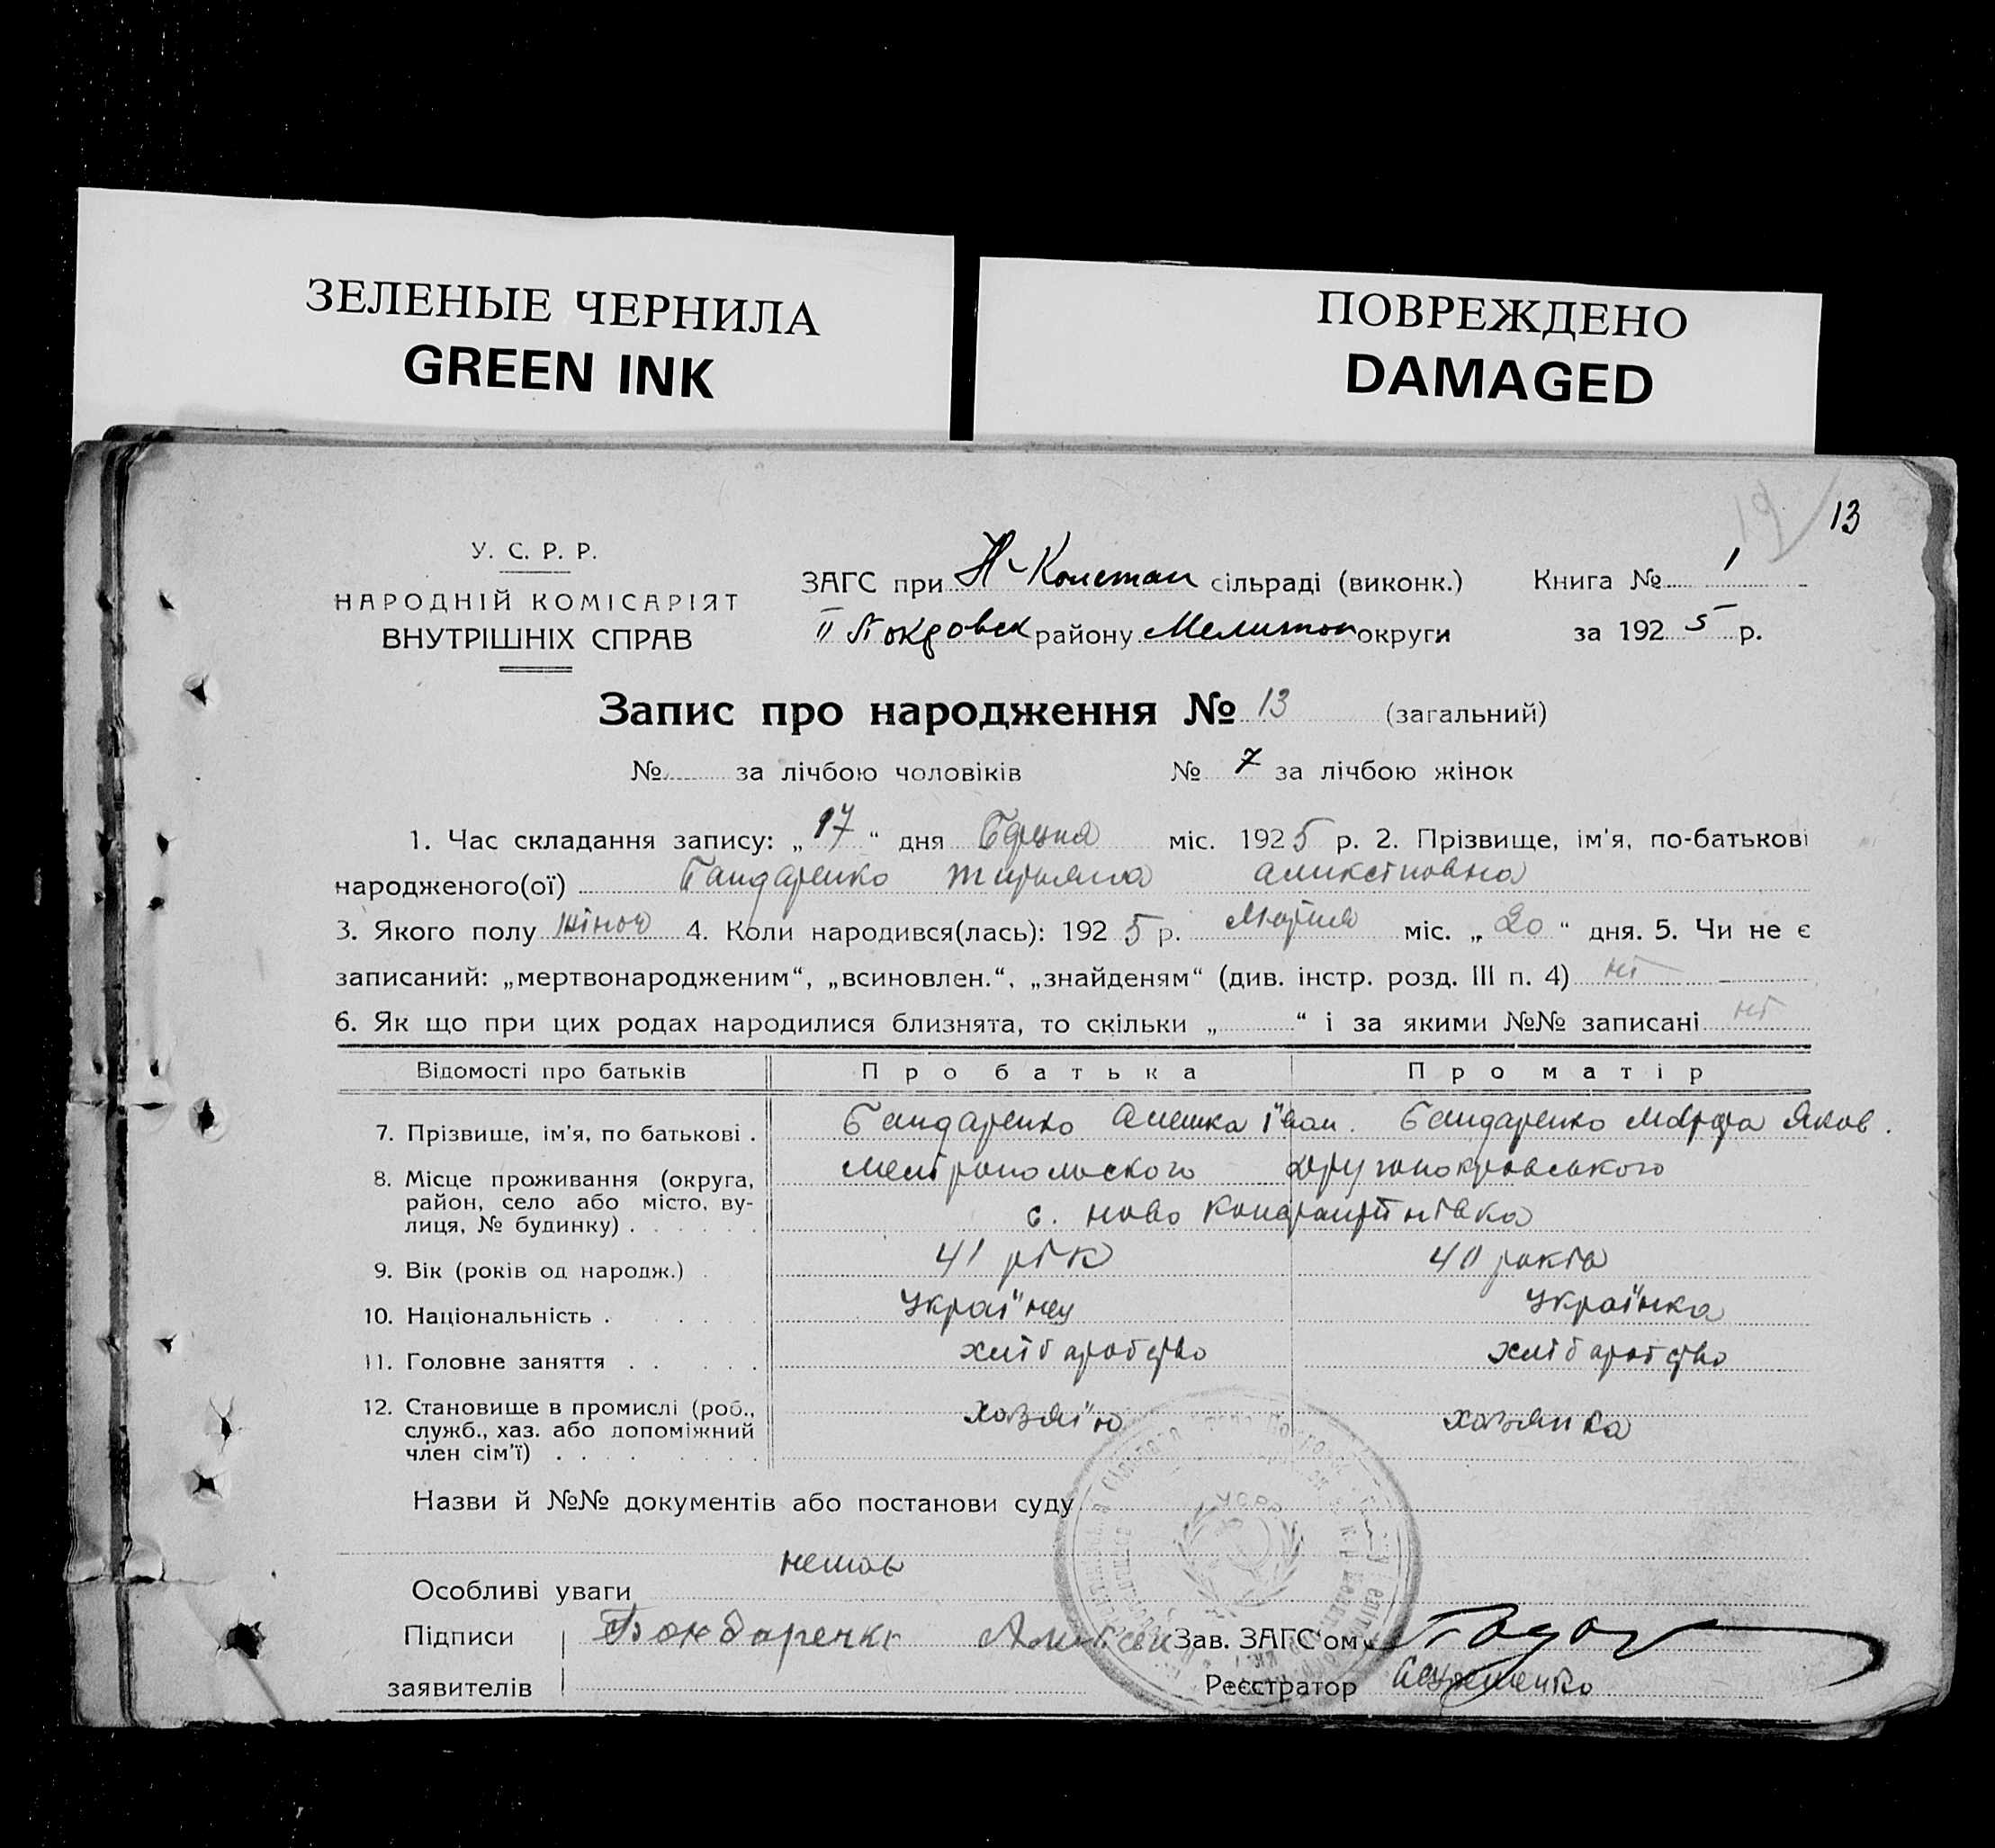 ЗЕЛЕНЫЕ ЧЕРНИЛА
GREEN INK
ПОВРЕЖДЕНО
DAMAGED
19 13
У. С. Р. Р.
НАРОДНІЙ КОМІСАРІЯТ
ВНУТРІШНІХ СПРАВ
ЗАГС при Н-Констан сільраді (виконк.) Книга № 1
II Покровск району Мелитоп округи за 1925 р.
Запис про народження № 13 (загальний)
№ за лічбою чоловіків № 7 за лічбою жінок
1. Час складання запису: „17“ дня міс. 1925 р. 2. Прізвище, ім'я, по-батькові
народженого(ої) Бандаренко
3. Якого полу жіноч 4. Коли народився(лась): 1925 р. міс. „20“ дня. 5. Чи не є
записаний: „мертвонародженим“, „всиновлен.“, „знайденям“ (див. інстр. розд. III п. 4) ні
6. Як що при цих родах народилися близнята, то скільки „ “ і за якими №№ записані ні
Відомості про батьків Про батька Про матір
7. Прізвище, ім'я, по батькові . Бандаренко Алешка Іван. Бандаренко Марфа Яков.
8. Місце проживання (округа, район, село або місто, вулиця, № будинку) . другопокровського
с. ново
9. Вік (років од народж.) . 41 рік 40 років
10. Національність . Україінец Україінка
11. Головне заняття . . хлібаробство хлібаробство
12. Становище в промислі (роб., служб., хаз. або допоміжний член сім'ї) . хазяіїн хазяика
Назви й №№ документів або постанови суду
Особливі уваги немає
Підписи Бондаренко Алексей Зав. ЗАГС'ом
заявителів Реєстратор
УСРР